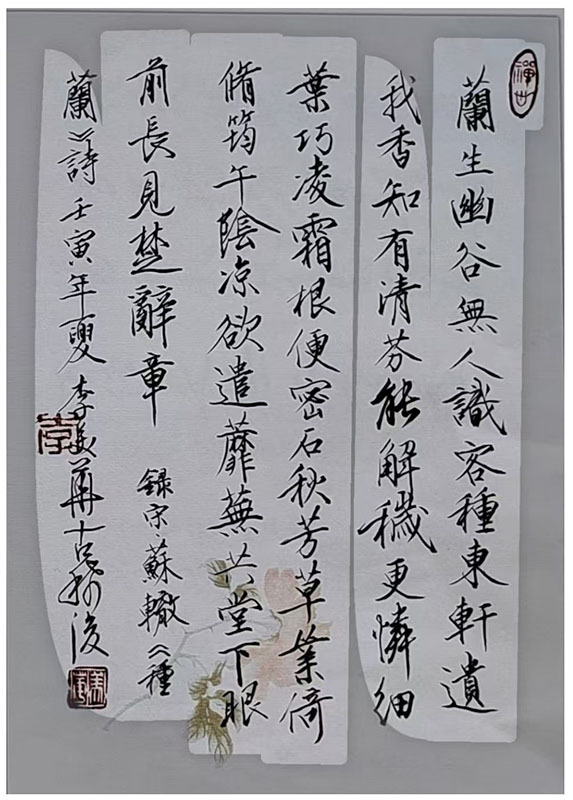 蘭生幽谷無人識客種東軒遺
我香知有清芬能解穢更憐細
葉巧凌霜根便密石秋芳草倚
脩筠午蔭凉欲遣蘼蕪共堂下眼
前長見楚辭章 録宋蘇轍《種
蘭》詩 壬寅年夏 李